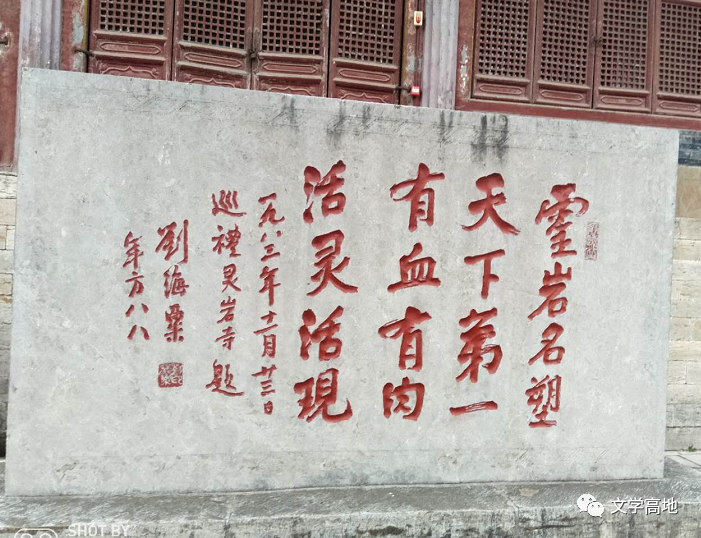 靈岩名塑
天下第一
有血有肉
活灵活現
一九八三年十一月廿三日
巡禮灵岩寺題
劉海粟
年方八八
文学高地
SHOT BY